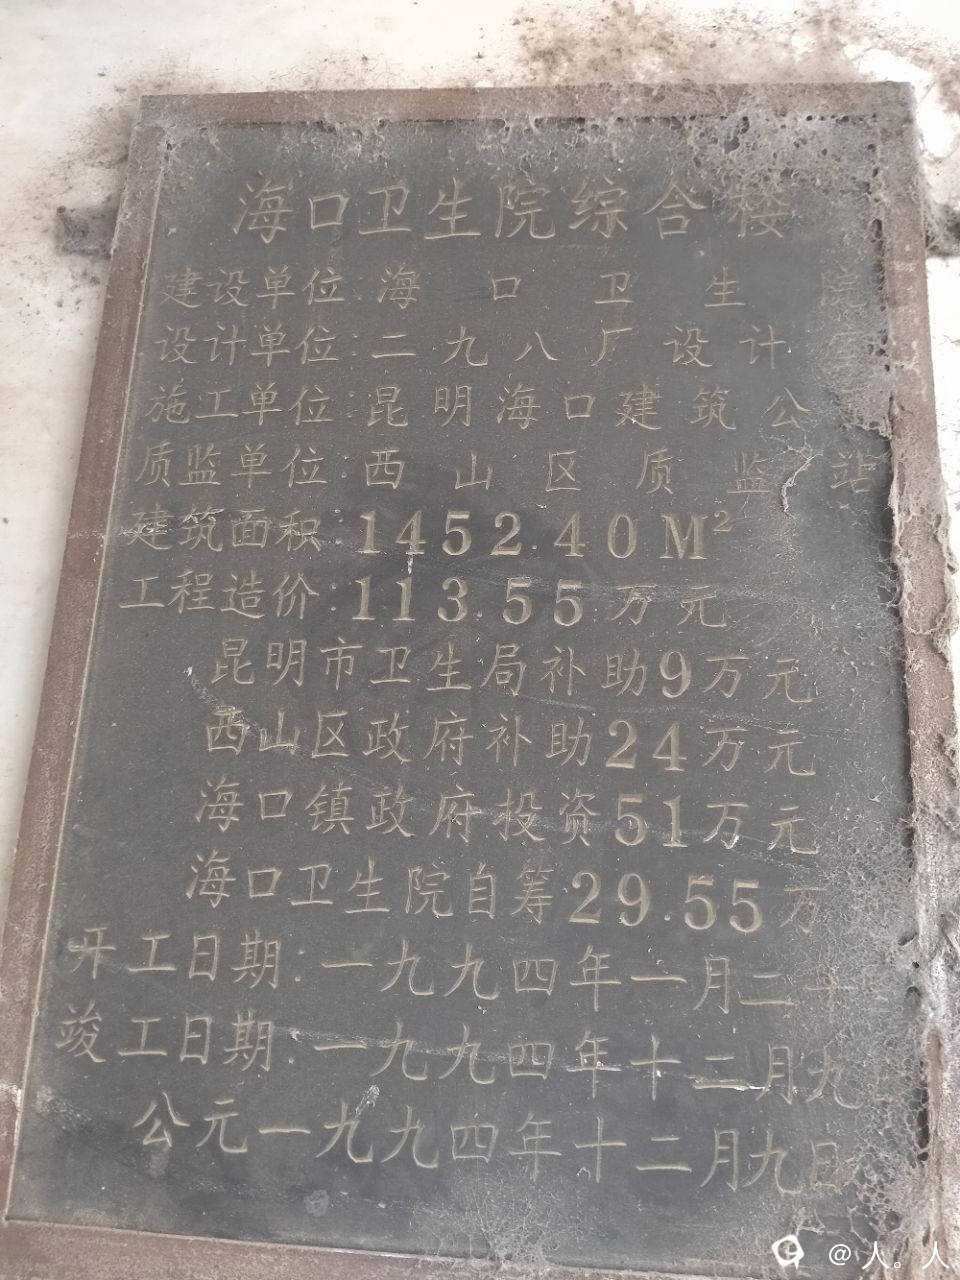 海口卫生院综合楼
建设单位:海口卫生院
设计单位:二九八厂设计
施工单位:昆明海口建筑公
质监单位:西山区质监站
建筑面积:1452.40M²
工程造价:113.55万元
昆明市卫生局补助9万元
西山区政府补助24万元
海口镇政府投资51万元
海口卫生院自筹29.55万
开工日期:一九九四年一月二十
竣工日期:一九九四年十二月九
公元一九九四年十二月九日
@人。人